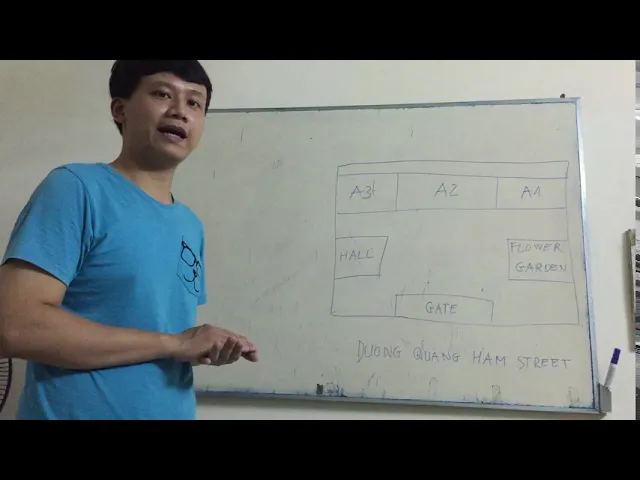 A3 A2 A1
HALL
FLOWER
GARDEN
GATE
DUONG QUANG HAM STREET